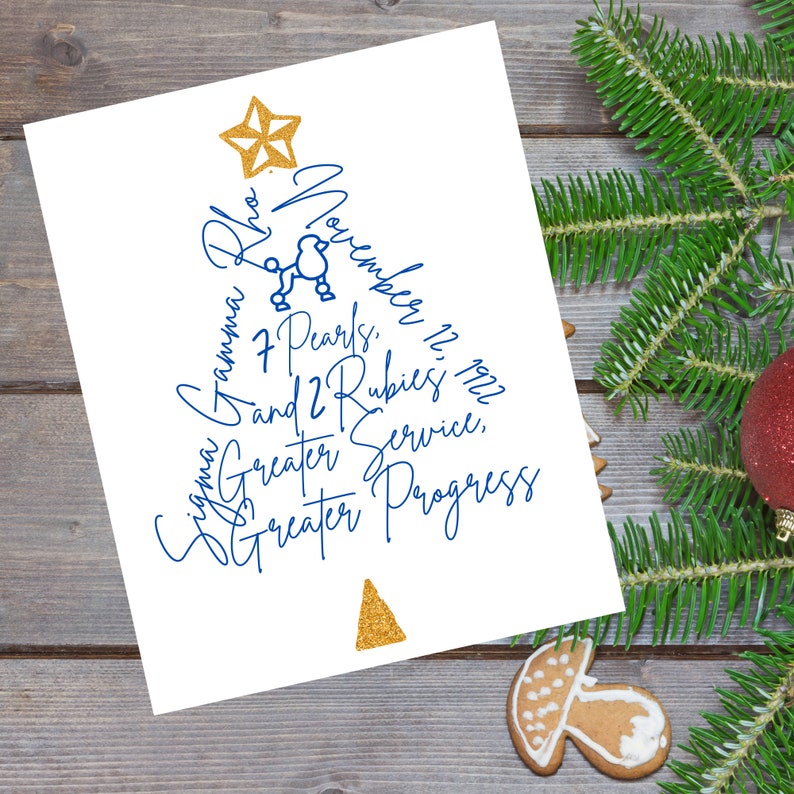 Sigma Gamma Rho
November 12, 1922
7 Pearls,
and 2 Rubies,
Greater Service,
Greater Progress